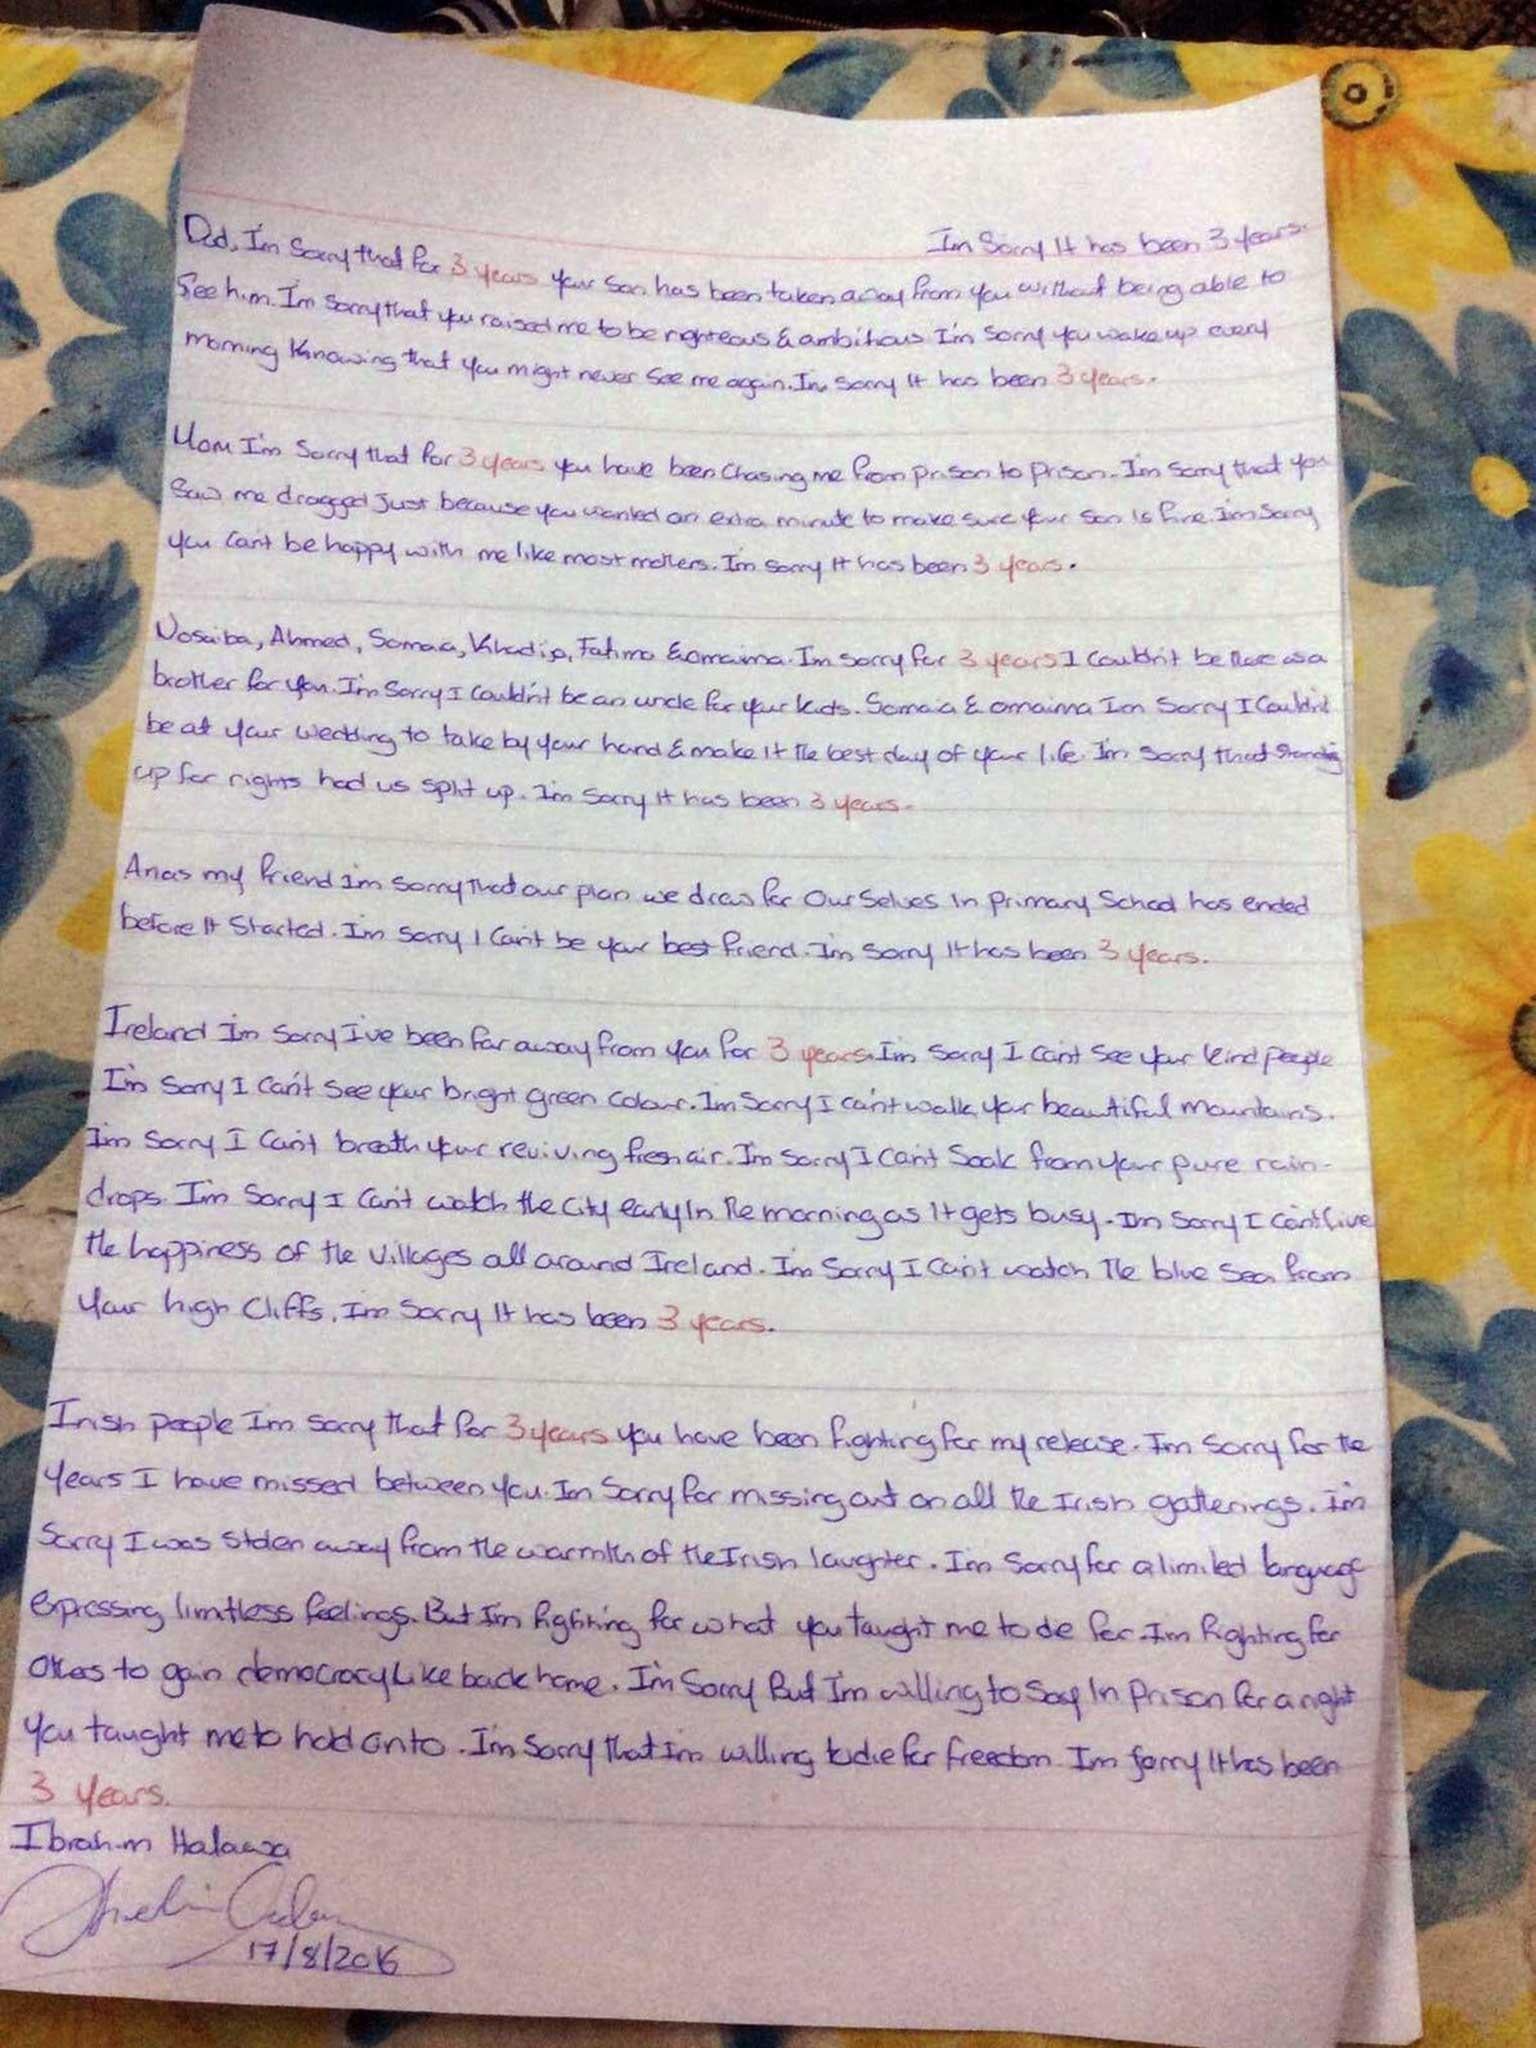 Im Sorry It has been 3 years.
Dad, I'm Sorry that for 3 years your son has been taken away from you without being able to
See him. I'm sorry that you raised me to be righteous & ambitious I'm sorry you wake up every
morning Knowing that you might never see me again. I'm sorry It has been 3 years.
Mom I'm Sorry that for 3 years you have been chasing me from prison to prison. I'm sorry that you
Saw me dragged Just because you wanted an extra minute to make sure your son is fine. I'm Sorry
you can't be happy with me like most mothers. I'm sorry It has been 3 years.
Nosaiba, Ahmed, Somaia, Khadija, Fatima & omaima. I'm sorry for 3 years I Couldn't be there as a
brother for you. I'm Sorry I Couldn't be an uncle for your kids. Somaia & omaima Im Sorry I Couldn't
be at your wedding to take by your hand & make It the best day of your life. I'm Sorry that standing
up for rights had us split up. I'm Sorry It has been 3 years.
Anas my friend I'm sorry that our plan we drew for Ourselves In primary School has ended
before It Started. I'm Sorry I Can't be your best friend. I'm Sorry It has been 3 years.
Ireland I'm Sorry I've been far away from you for 3 years. I'm Sorry I Can't see your kind people
I'm Sorry I Can't see your bright green colour. I'm Sorry I can't walk your beautiful mountains.
I'm Sorry I Can't breath your reviving fresh air. I'm Sorry I Can't Soak from your pure rain-
drops. I'm Sorry I Can't watch the city early In the morning as It gets busy. Im Sorry I can't live
the happiness of the villages all around Ireland. I'm Sorry I Can't watch the blue sea from
your high Cliffs. I'm Sorry It has been 3 years.
Irish people I'm sorry that for 3 years you have been fighting for my release. I'm Sorry for the
years I have missed between you. I'm Sorry for missing out on all the Irish gatherings. I'm
Sorry I was stolen away from the warmth of the Irish laughter. I'm Sorry for a limited language
expressing limitless feelings. But I'm fighting for what you taught me to die for. I'm fighting for
others to gain democracy Like back home. I'm Sorry But I'm willing to Stay In prison for a right
you taught me to hold onto. I'm Sorry that I'm willing to die for freedom. Im sorry It has been
3 years.
Ibrahim Halawa
17/8/2016